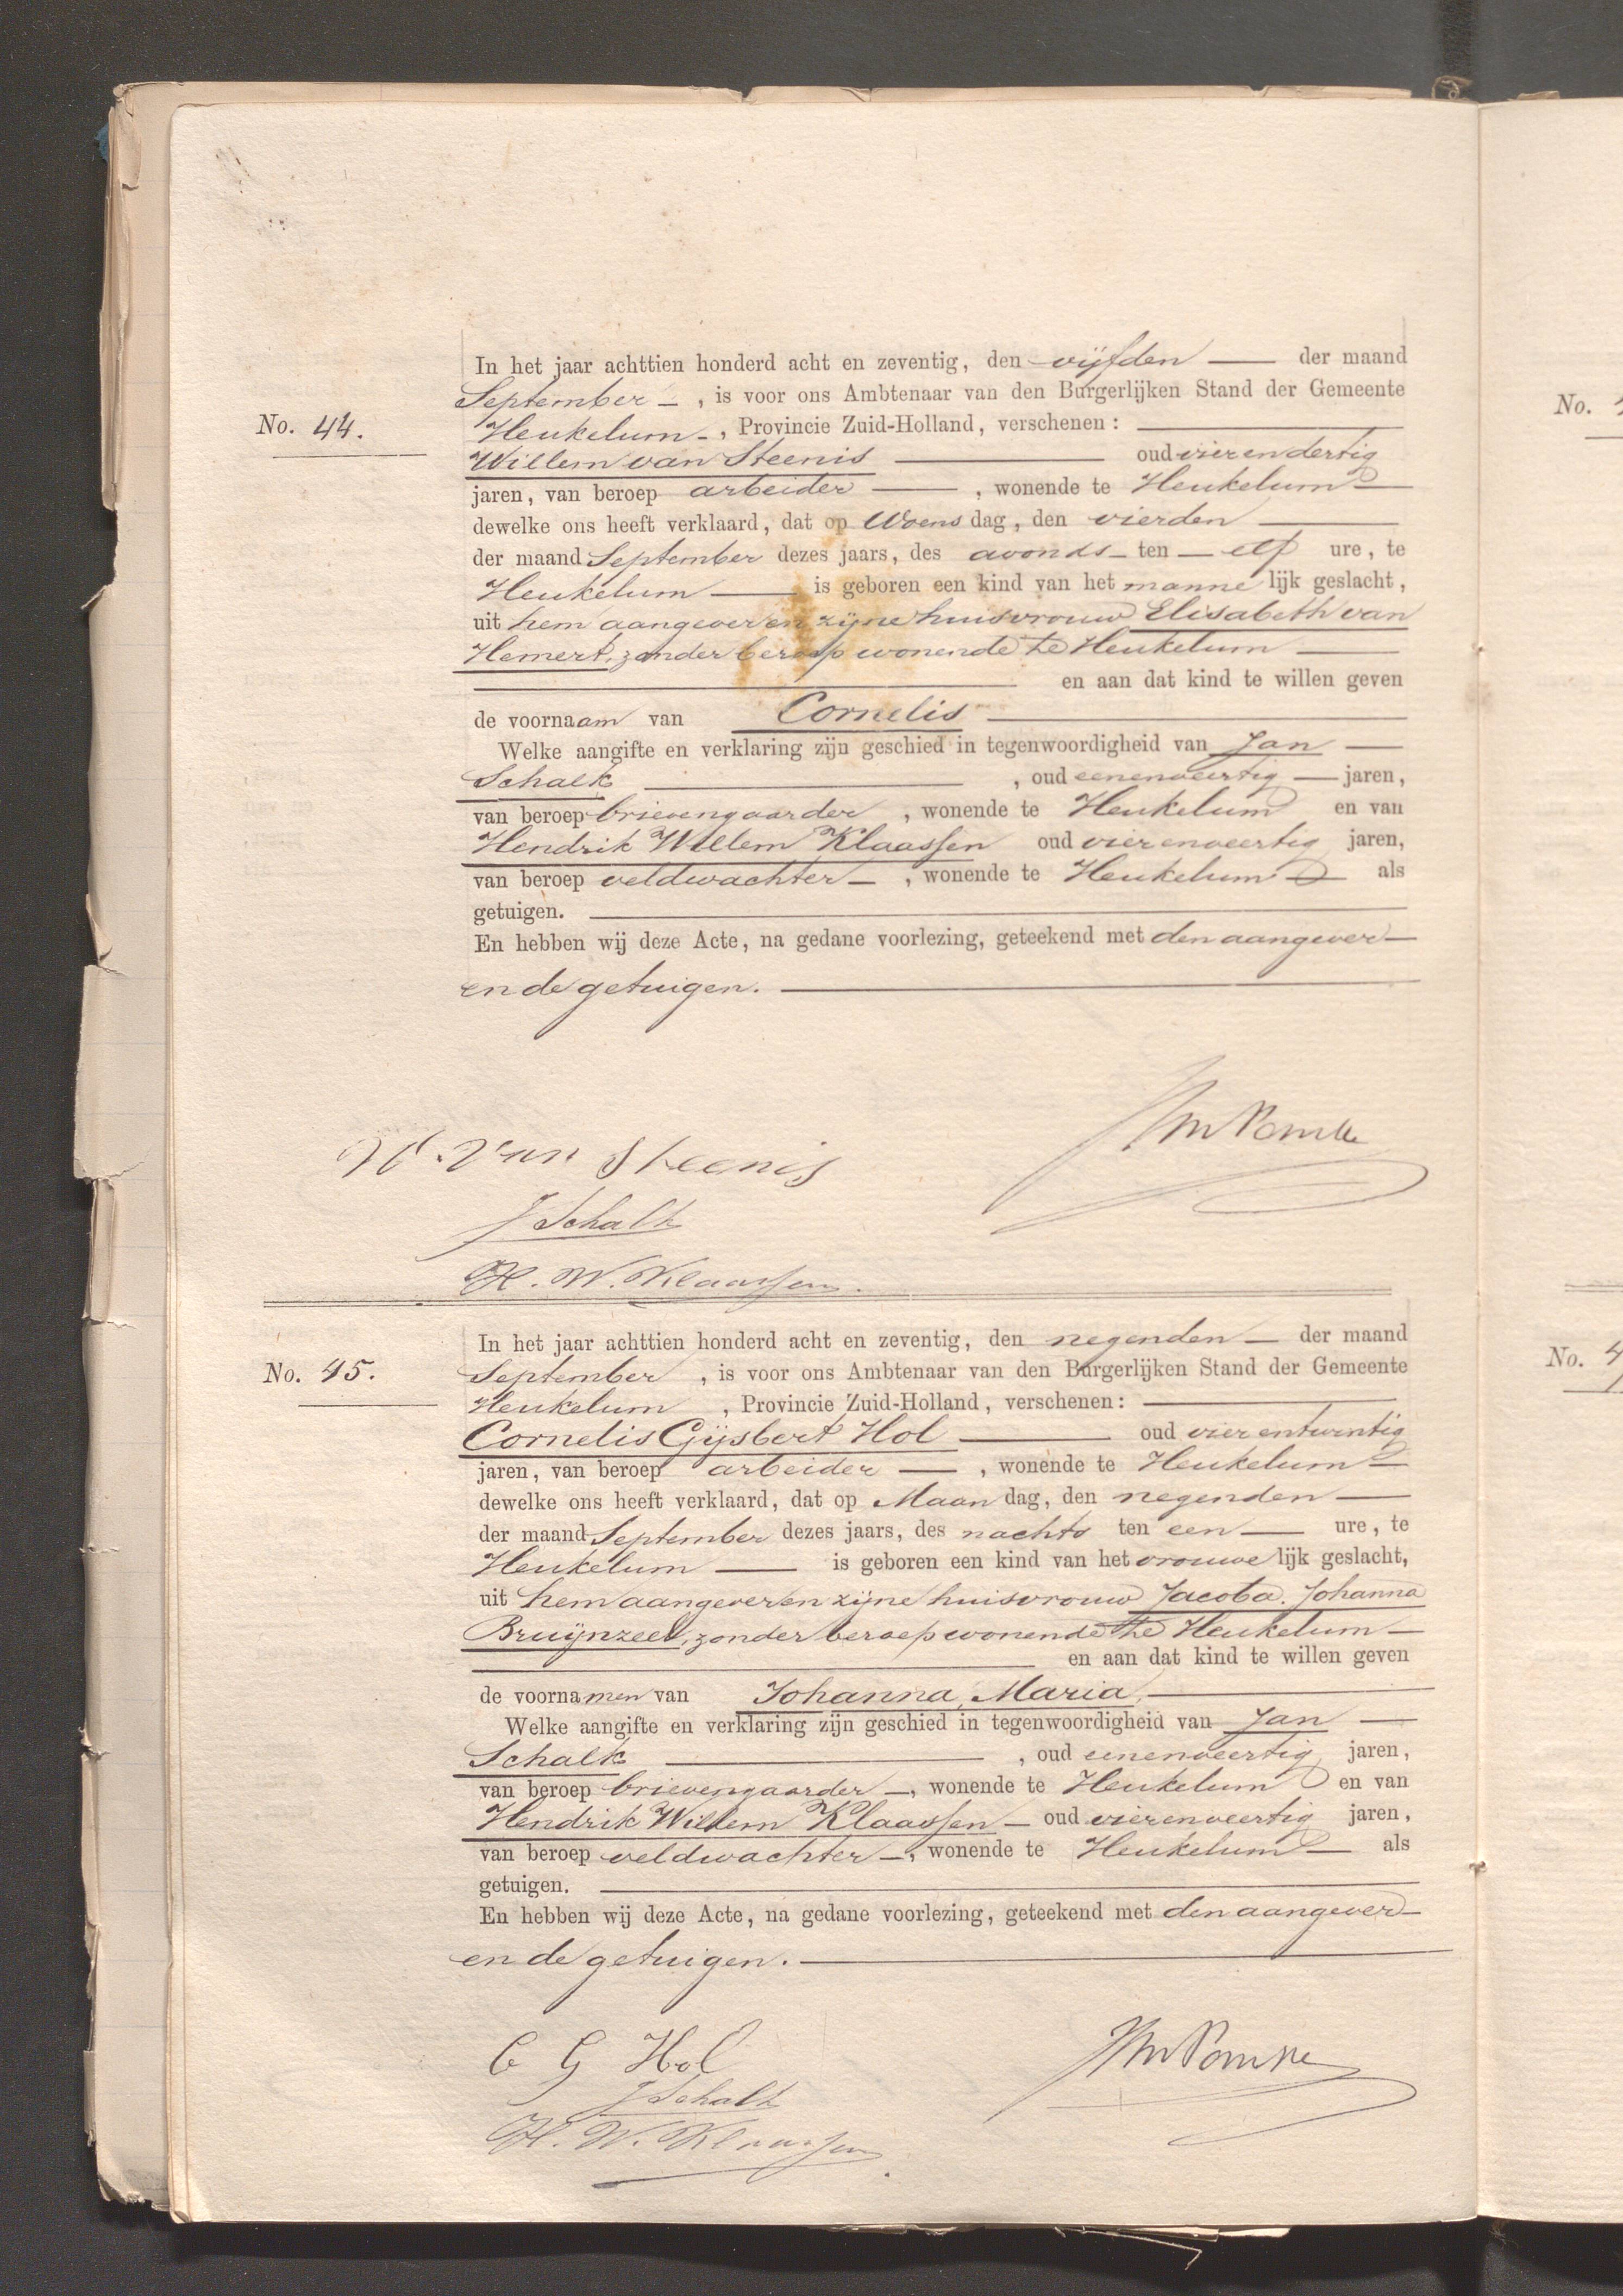 In het jaar achttien honderd acht en zeventig, den vijfden — der maand
September —, is voor ons Ambtenaar van den Burgerlijken Stand der Gemeente
No. 44.
Heukelum —, Provincie Zuid-Holland, verschenen:
Willem van Steenis — oud vierendertig
jaren, van beroep arbeider —, wonende te Heukelum —
dewelke ons heeft verklaard, dat op Woensdag, den vierden —
der maand September dezes jaars, des avonds — ten — elf ure, te
Heukelum — is geboren een kind van het mannelijk geslacht,
uit hem aangever en zijne huisvrouw Elisabeth van
Hemert, zonder beroep wonende te Heukelum —
— en aan dat kind te willen geven
de voornaam van Cornelis —
Welke aangifte en verklaring zijn geschied in tegenwoordigheid van Jan —
Schalk —, oud eenenveertig — jaren,
van beroep brievengaarder, wonende te Heukelum en van
Hendrik Willem Klaassen oud vierenveertig jaren,
van beroep veldwachter —, wonende te Heukelum — als
getuigen. —
En hebben wij deze Acte, na gedane voorlezing, geteekend met den aangever —
en de getuigen. —
W. van Steenis
J Schalk
H. W. Klaassen
In het jaar achttien honderd acht en zeventig, den negenden — der maand
No. 45.
September, is voor ons Ambtenaar van den Burgerlijken Stand der Gemeente
Heukelum, Provincie Zuid-Holland, verschenen: —
Cornelis Gijsbert Hol — oud vierentwintig
jaren, van beroep arbeider —, wonende te Heukelum —
dewelke ons heeft verklaard, dat op Maandag, den negenden —
der maand September dezes jaars, des nachts ten een — ure, te
Heukelum — is geboren een kind van het vrouwelijk geslacht,
uit hem aangever en zijne huisvrouw Jacoba Johanna
Bruijnzeel, zonder beroep wonende te Heukelum —
— en aan dat kind te willen geven
de voornamen van Johanna, Maria, —
Welke aangifte en verklaring zijn geschied in tegenwoordigheid van Jan —
Schalk —, oud eenenveertig jaren,
van beroep brievengaarder —, wonende te Heukelum en van
Hendrik Willem Klaassen — oud vierenveertig jaren,
van beroep veldwachter —, wonende te Heukelum — als
getuigen. —
En hebben wij deze Acte, na gedane voorlezing, geteekend met den aangever —
en de getuigen. —
C G Hol
J Schalk
H. W. Klaassen
No.
No. 4